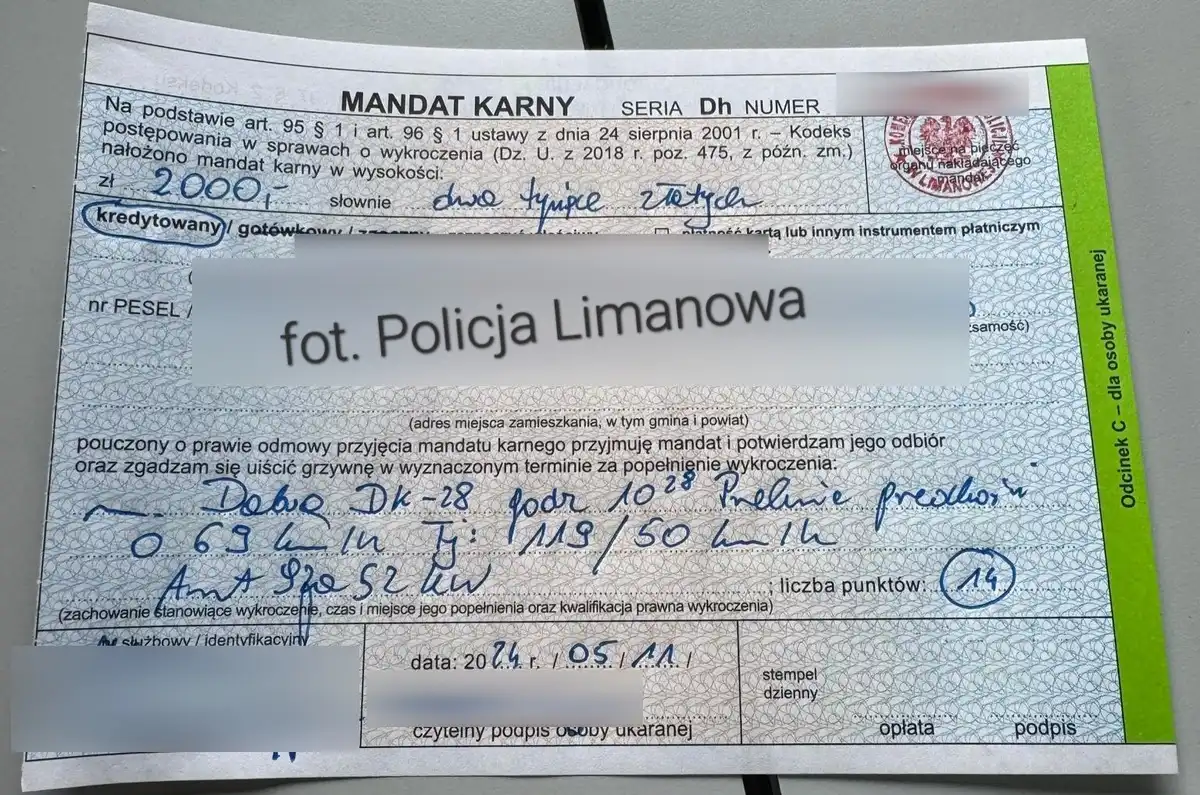 MANDAT KARNY SERIA Dh NUMER
Na podstawie art. 95 § 1 i art. 96 § 1 ustawy z dnia 24 sierpnia 2001 r. – Kodeks
postępowania w sprawach o wykroczenia (Dz. U. z 2018 r. poz. 475, z późn. zm.)
nałożono mandat karny w wysokości:
miejsce na pieczęć
organu nakładającego
mandat
zł 2000,- słownie dwa tysiące złotych
kredytowany / gotówkowy /
płatność kartą lub innym instrumentem płatniczym
nr PESEL /
fot. Policja Limanowa
(adres miejsca zamieszkania, w tym gmina i powiat)
pouczony o prawie odmowy przyjęcia mandatu karnego przyjmuję mandat i potwierdzam jego odbiór
oraz zgadzam się uiścić grzywnę w wyznaczonym terminie za popełnienie wykroczenia:
Dobra DK-28 godz 10 28
o 69 km/h Tj: 119/50 km/h
Art 92a §2 kw ; liczba punktów: 14
(zachowanie stanowiące wykroczenie, czas i miejsce jego popełnienia oraz kwalifikacja prawna wykroczenia)
nr służbowy / identyfikacyjny
data: 2024 r. / 05 / 11 /
czytelny podpis osoby ukaranej
stempel
dzienny
opłata podpis
Odcinek C – dla osoby ukaranej